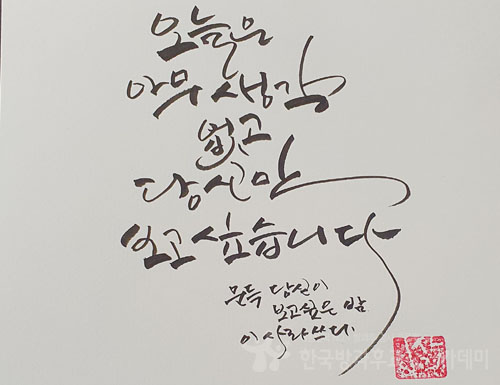 오늘은
아무 생각
없고
당신만
보고 싶습니다
문득 당신이
보고싶은 밤
이 사라 쓰다.
한국방과후교
카데미